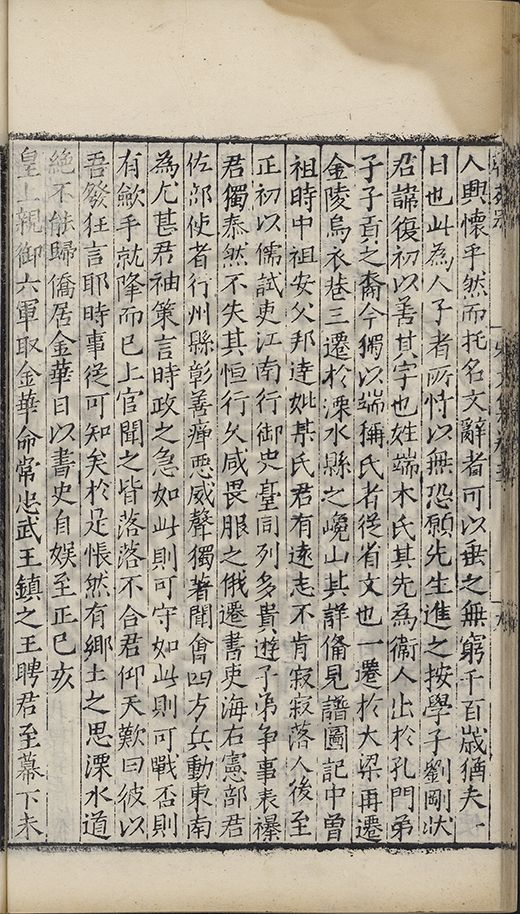 人興懷乎然而托名文辭者可以垂之無窮千百歲猶夫一
日也此為人子者所恃以無恐願先生進之按學子劉剛狀
君諱復初以善其字也姓端木氏其先為衞人出於孔門弟
子子貢之裔今獨以端稱氏者從省文也一遷於大梁再遷
金陵烏衣巷三遷於溧水縣之巏山其詳備見譜圖記中曾
祖時中祖安父邦逹妣某氏君有遠志不肯寂寂落人後至
正初以儒試吏江南行御史臺同列多貴遊子弟爭事表襮
君獨泰然不失其恒行久咸畏服之俄遷書吏海右憲部君
佐部使者行州縣彰善癉惡威聲獨著聞會四方兵動東南
為尤甚君袖策言時政之急如此則可守如此則可戰否則
有斂手就降而已上官聞之皆落落不合君仰天歎曰彼以
吾發狂言耶時事從可知矣於是悵然有鄉土之思溧水道
絶不能歸僑居金華日以書史自娛至正已亥
皇上親御六軍取金華命常忠武王鎮之王聘君至幕下未